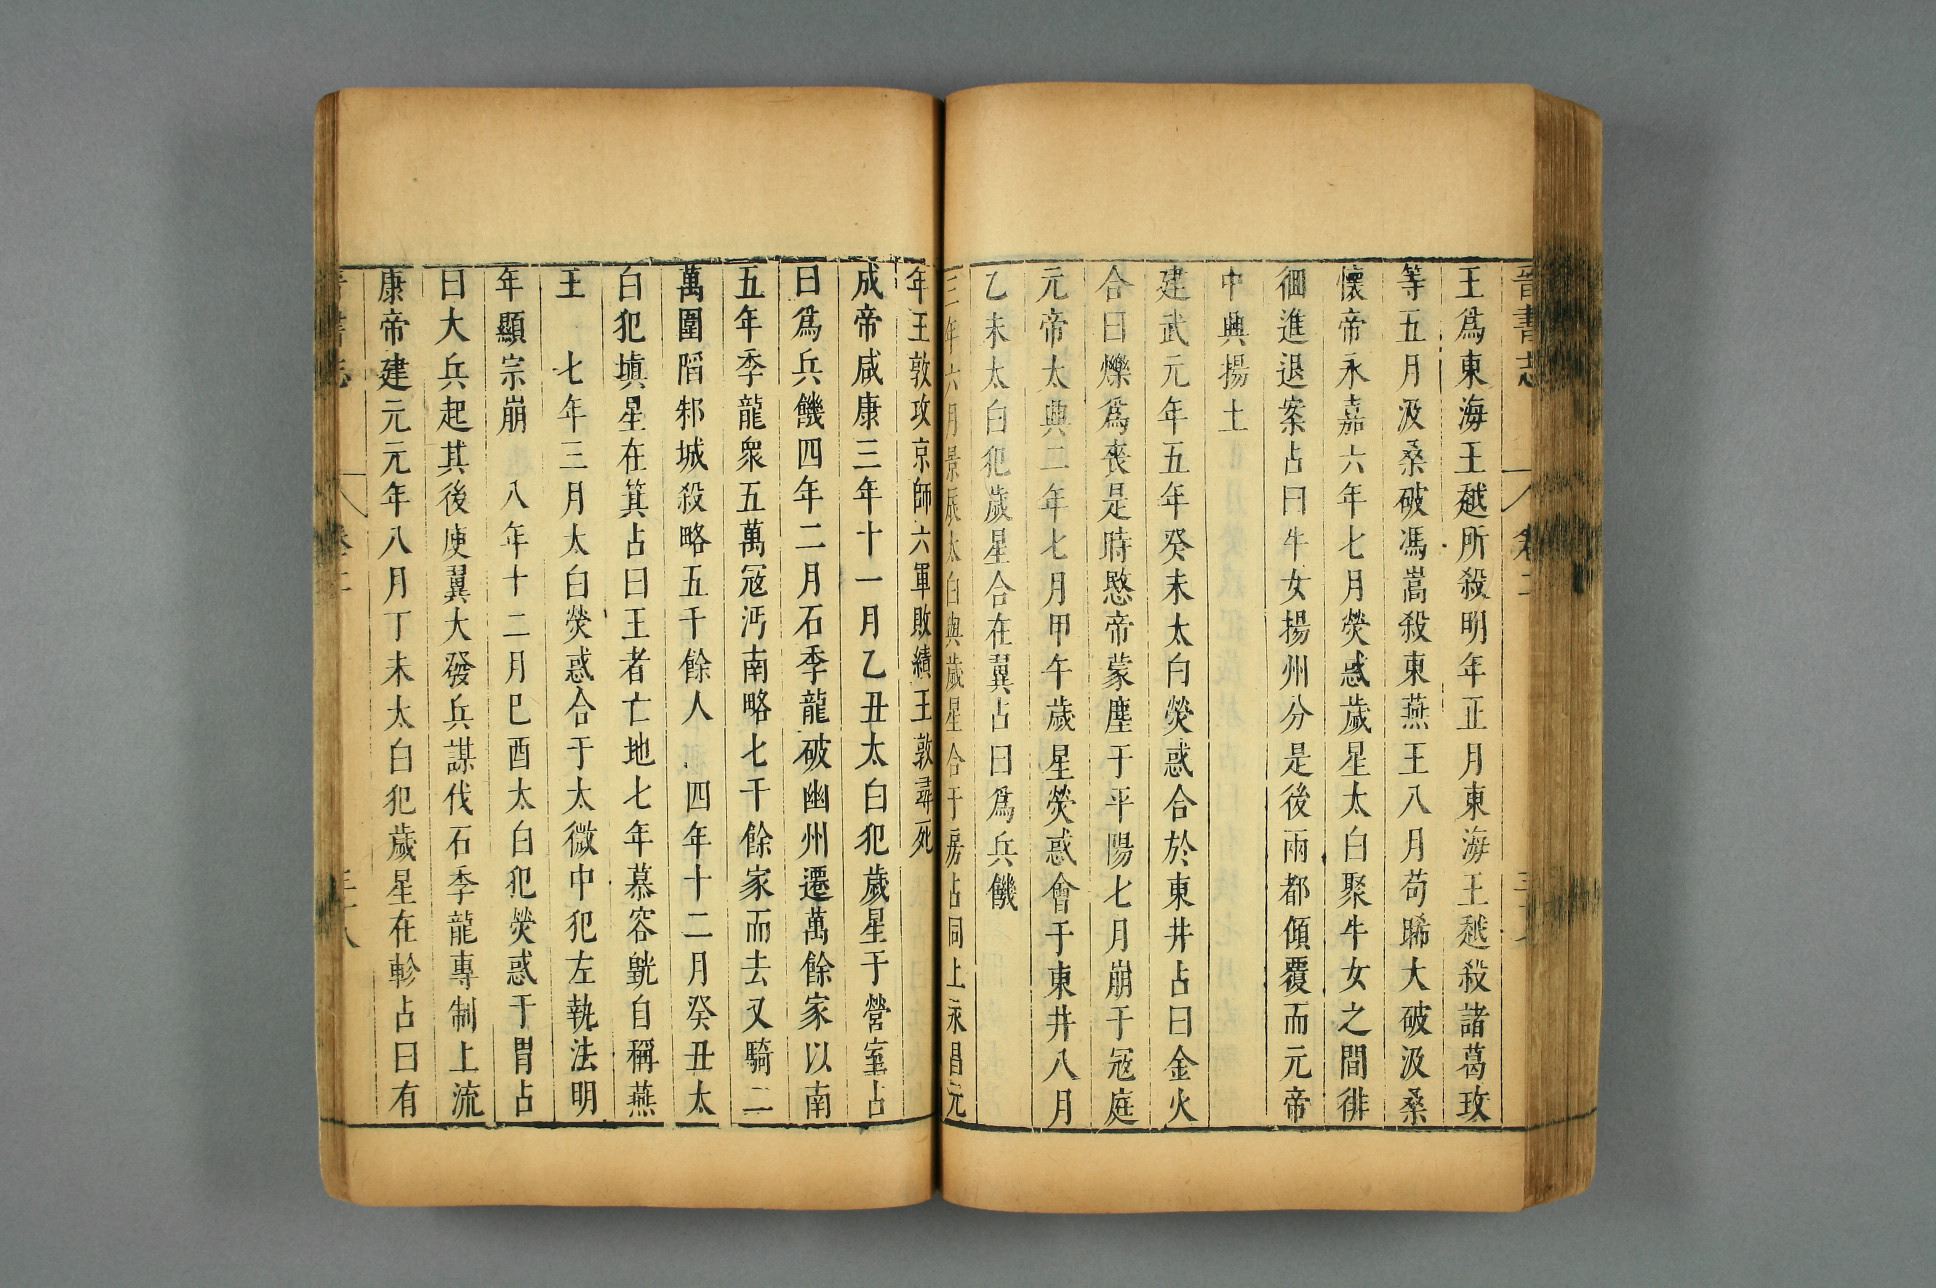 晉書志 卷十二
王爲東海王越所殺明年正月東海王越殺諸葛玫
等五月汲桑破馮嵩殺東燕王八月苟晞大破汲桑
懷帝永嘉六年七月熒惑歲星太白聚牛女之間徘
徊進退案占曰牛女揚州分是後兩都傾覆而元帝
中興揚土
建武元年五年癸未太白熒惑合於東井占曰金火
合曰爍爲喪是時愍帝蒙塵于平陽七月崩于冦庭
元帝太興二年七月甲午歲星熒惑會于東井八月
乙未太白犯歲星合在翼占曰爲兵饑
三年六月景辰太白與歲星合于房占同上永昌元
年王敦攻京師六軍敗績王敦尋死
成帝咸康三年十一月乙丑太白犯歲星于營室占
曰爲兵饑四年二月石季龍破幽州遷萬餘家以南
五年季龍衆五萬冦沔南略七千餘家而去又騎二
萬圍䧟邾城殺略五千餘人 四年十二月癸丑太
白犯塡星在箕占曰王者亡地七年慕容皝自稱燕
王 七年三月太白熒惑合于太微中犯左執法明
年顯宗崩 八年十二月己酉太白犯熒惑于胃占
曰大兵起其後庾翼大發兵謀伐石季龍專制上流
康帝建元元年八月丁未太白犯歲星在軫占曰有
晉書志 卷十二 三十八